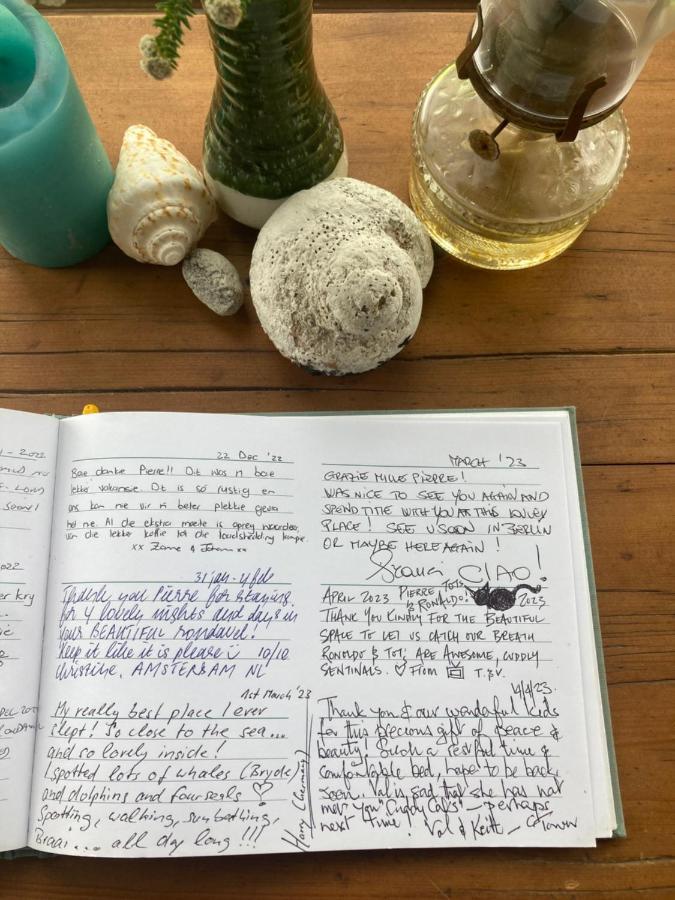 - 2022
soon!
2022
er kry
22 Dec '22
Baie dankie Pierre!! Dit was 'n baie
lekker vakansie. Dit is so rustig en
ons kon nie vir 'n beter plekkie gevra
het nie. Al die ekstra moeite is opreg waardeer,
van die lekker koffie tot die loadshedding lampe.
xx &  xx
31 jan - 4 feb
Thank you Pierre for staying
for 4 lovely nights and days in
your BEAUTIFUL rondavel!
Keep it like it is please 10/10
Christine, AMSTERDAM NL
1st March '23
My really best place I ever
slept! So close to the sea...
and so lovely inside!
I spotted lots of whales (Bryde)
and dolphins and four seals ♡
Spotting, walking, sunbathing,
Braai... all day long!!!
Harry (Germany)
MARCH '23
GRAZIE MILLE PIERRE!
WAS NICE TO SEE YOU AGAIN AND
SPEND TIME WITH YOU AT THIS LOVELY
PLACE! SEE U SOON IN BERLIN
OR MAYBE HERE AGAIN!
CIAO!
APRIL 2023 PIERRE TOTI
& RONALDO! 2023
THANK YOU KINDLY FOR THE BEAUTIFUL
SPACE TO LET US CATCH OUR BREATH
RONALDO & TOTI ARE AWESOME, CUDDLY
SENTINALS. ♡ FROM T.BV.
4/4/23.
Thank you & our wonderful kids
for this precious gift of peace &
beauty! Such a restful time &
comfortable bed, hope to be back
soon. Val is sad that she has not
met your "Cuddly Cats" – perhaps
next time! Val & Keith – CTown